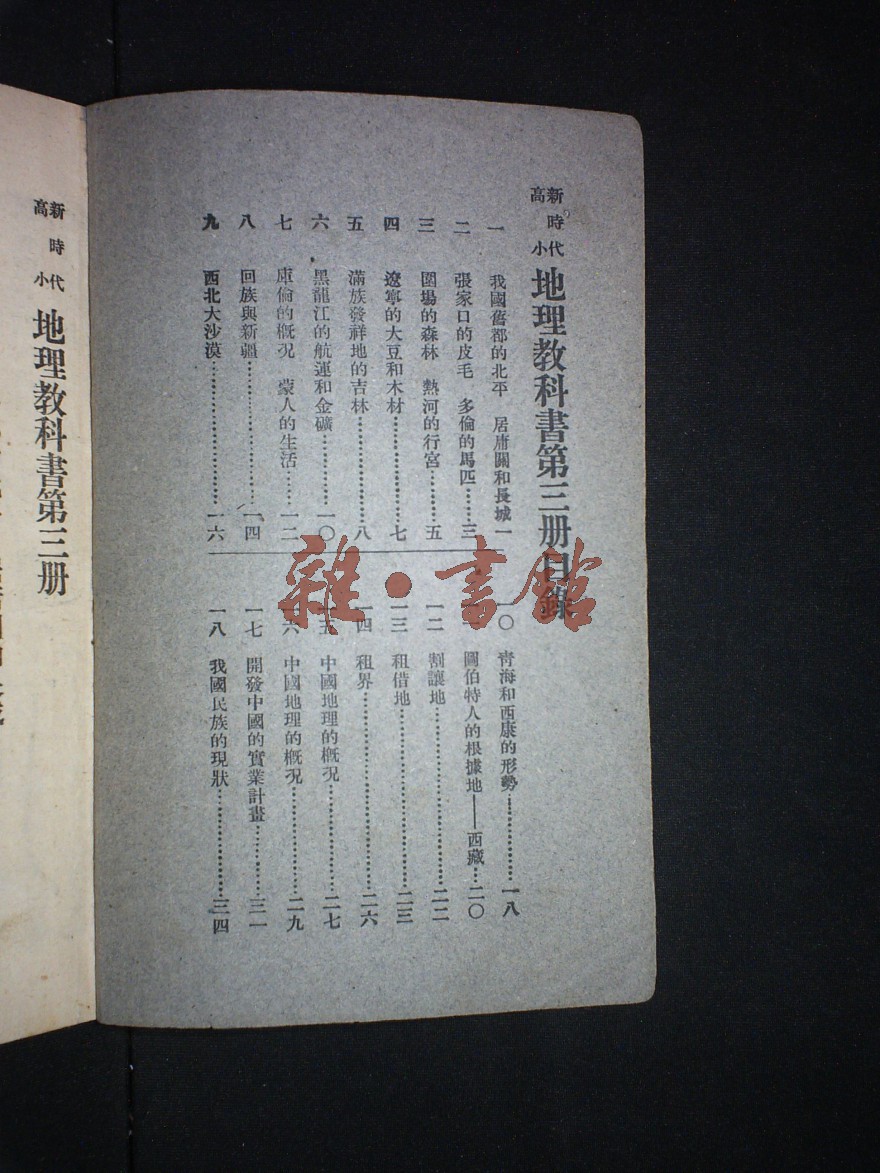 新時代高小
地理教科書第三册目錄
一 我國舊都的北平 居庸關和長城 一
二 張家口的皮毛 多倫的馬匹……三
三 圍場的森林 熱河的行宮……五
四 遼寧的大豆和木材……七
五 滿族發祥地的吉林……八
六 黑龍江的航運和金礦……一〇
七 庫倫的概況 蒙人的生活……一二
八 回族與新疆……一四
九 西北大沙漠……一六
一〇 青海和西康的形勢……一八
圖伯特人的根據地——西藏…二〇
一二 割讓地……二二
一三 租借地……二三
一四 租界……二六
一五 中國地理的概況……二七
一六 中國地理的概況……二九
一七 開發中國的實業計畫……三一
一八 我國民族的現狀……三四
雜·書館
新時代高小
地理教科書第三册